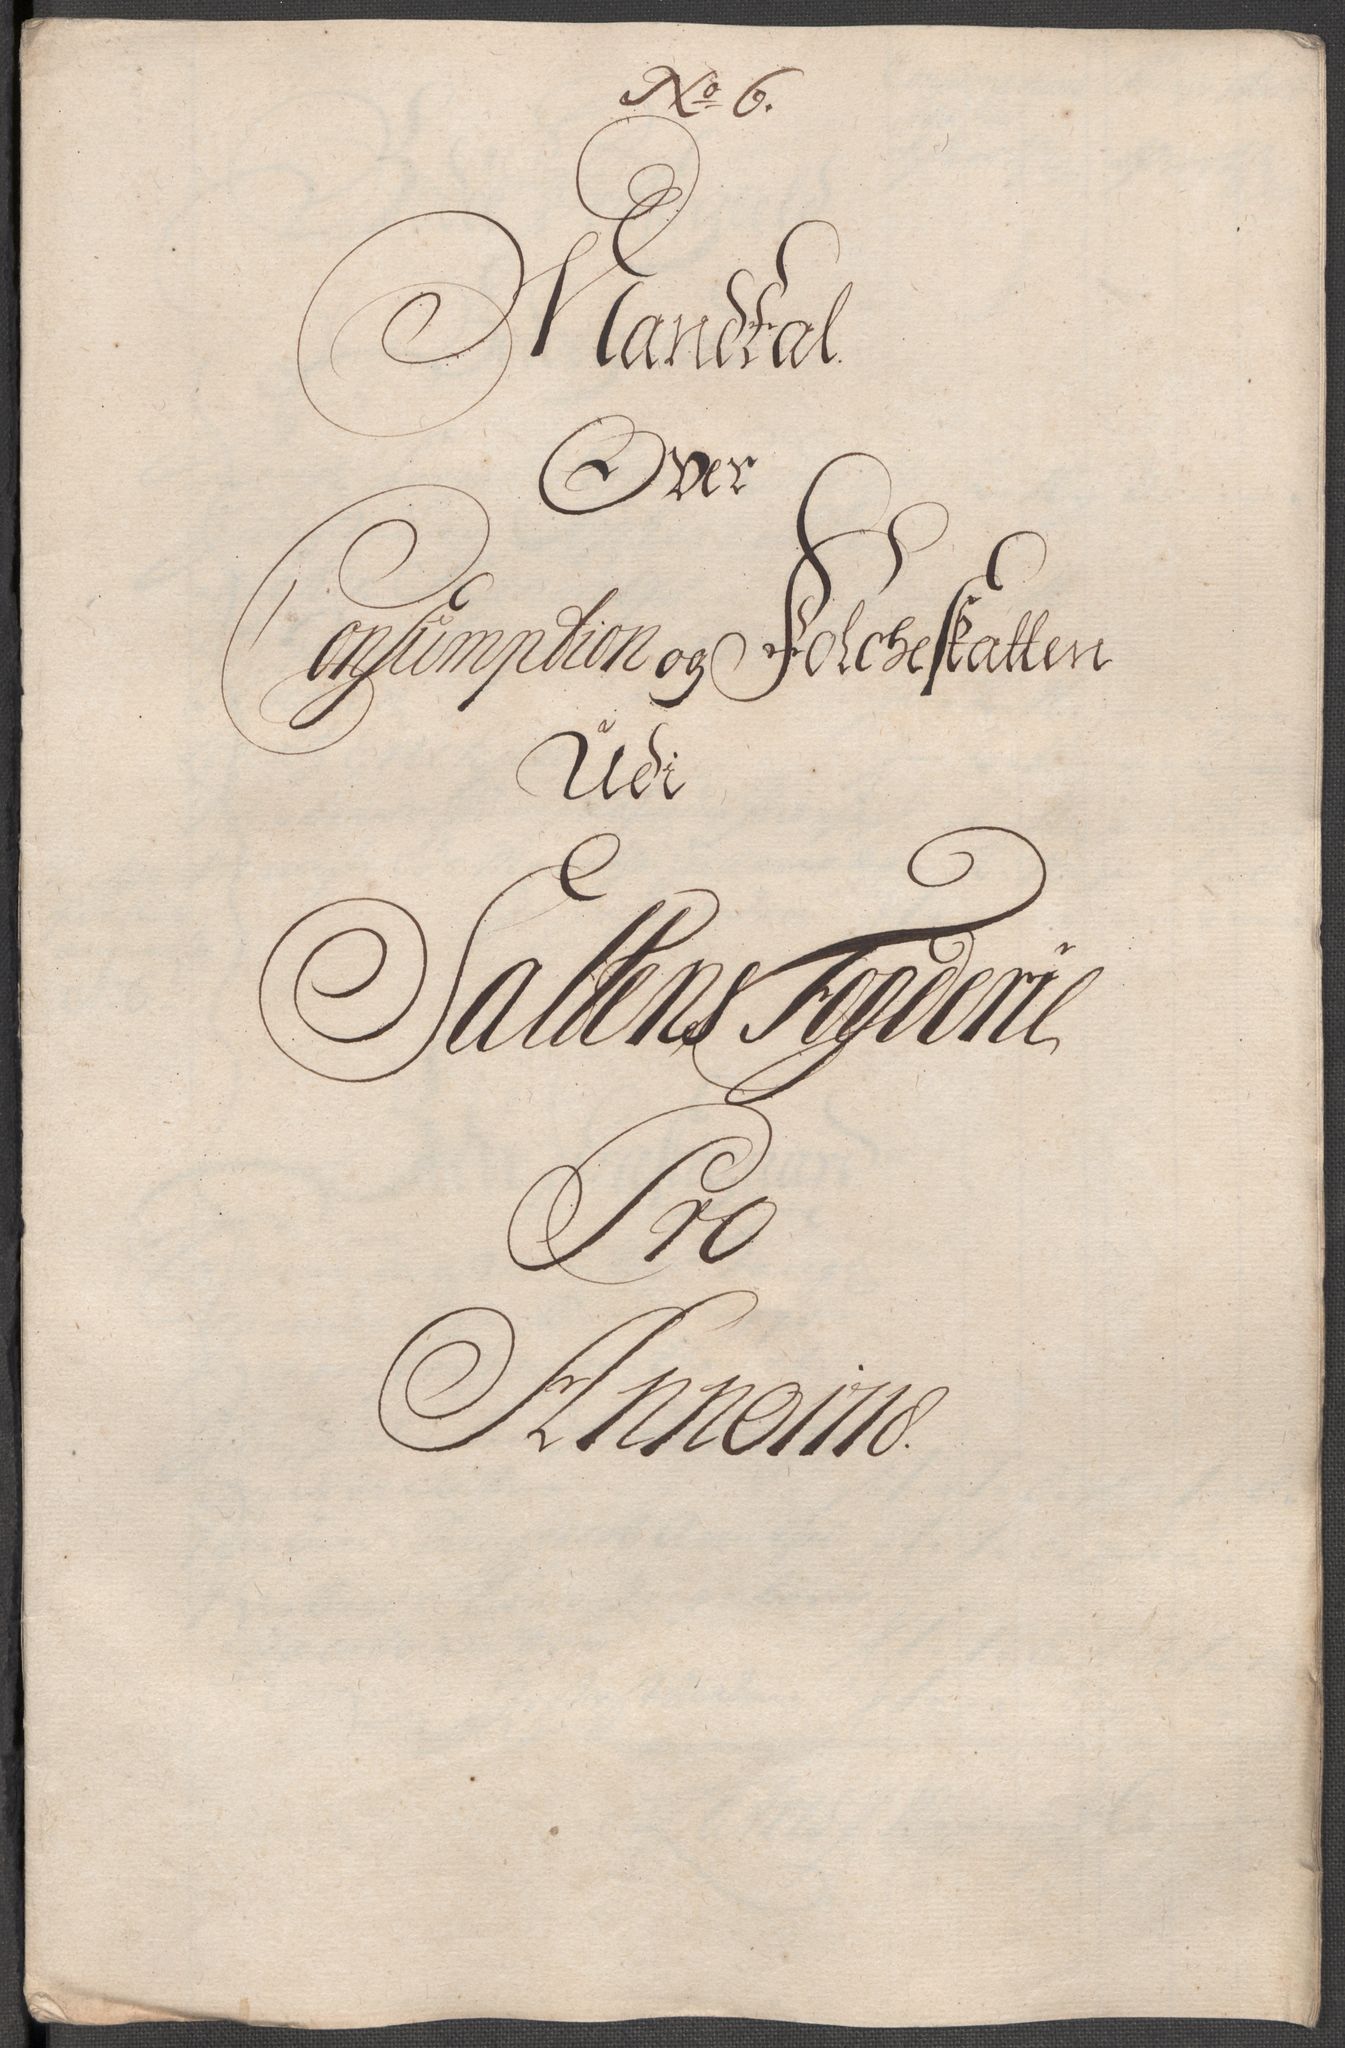 No 6.
Mandtal
Over
Consumption og Folcheskatten
Udi
Saltens Fogderie
Pro
Anno 1718.